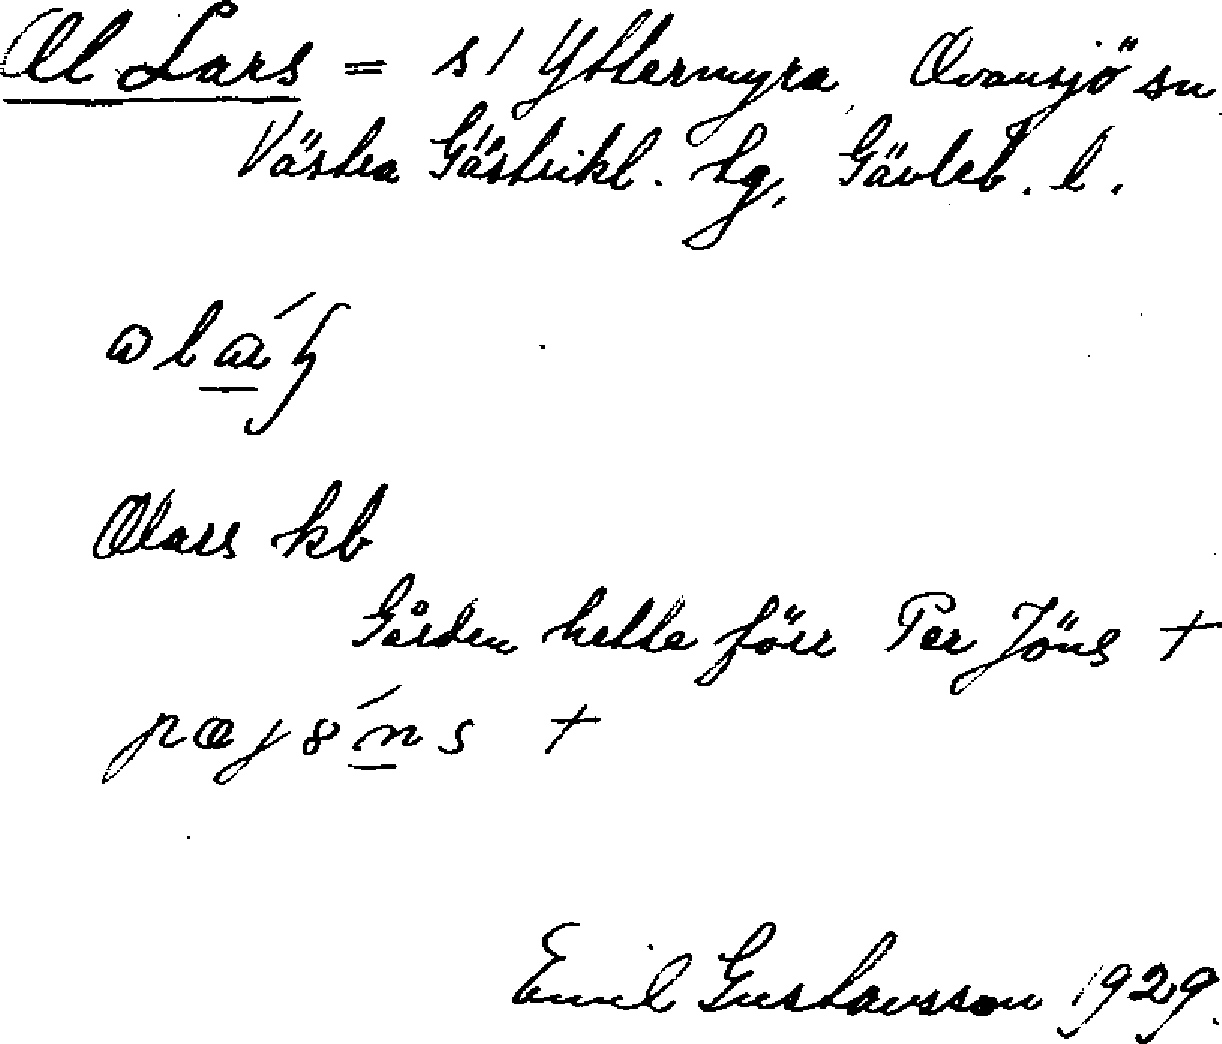 Ol Lars = s/ Yttermyra, Ovansjö sn
Västra Gästrikl. tg, Gävleb. l.
Olars kb
Gården hette förr Per Jöns +
Emil Gustavsson 1929.